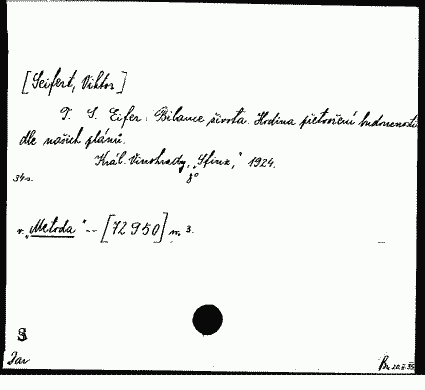 [Seifert, Viktor]
T. S. Eifer: Bilance života. Hodina přetvoření budoucnosti
dle našich plánů.
Král. Vinohrady, „Sfinx," 1924.
34 s. 8°
v. „Metoda" -- [72950] sv. 3.
S
Jar
20.X.35